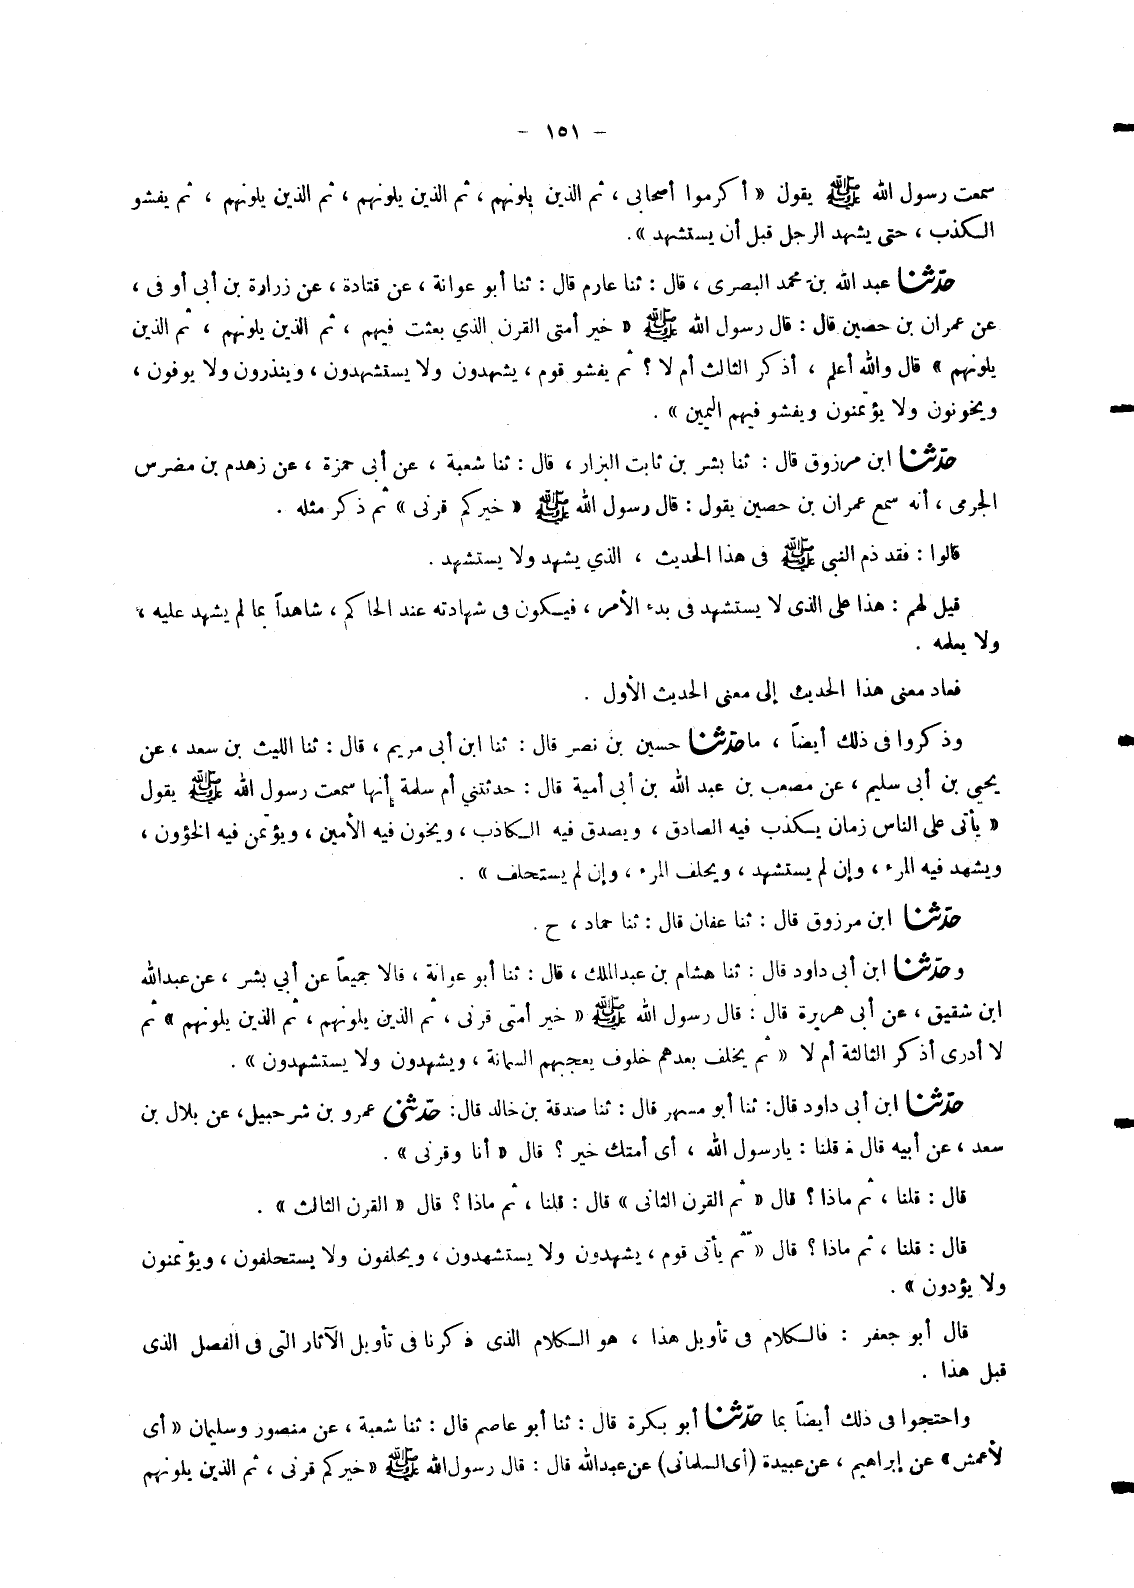 - ١٥١ -
سمعت رسول الله ﷺ يقول « أكرموا أصحابى ، ثم الذين يلونهم ، ثم الذين يلونهم ، ثم الذين يلونهم ، ثم يفشو
الكذب ، حتى يشهد الرجل قبل أن يستشهد » .
حدّثنا عبد الله بن محمد البصرى ، قال : ثنا عارم قال : ثنا أبو عوانة ، عن قتادة ، عن زرارة بن أبى أوفى ،
عن عمران بن حصين قال : قال رسول الله ﷺ « خير أمتى القرن الذي بعثت فيهم ، ثم الذين يلونهم ، ثم الذين
يلونهم » قال والله أعلم ، أذكر الثالث أم لا ؟ ثم يفشو قوم ، يشهدون ولا يستشهدون ، وينذرون ولا يوفون ،
ويخونون ولا يؤتمنون ويفشو فيهم اليمين » .
حدّثنا ابن مرزوق قال : ثنا بشر بن ثابت البزار ، قال : ثنا شعبة ، عن أبى حمزة ، عن زهدم بن مضرس
الجرمى ، أنه سمع عمران بن حصين يقول : قال رسول الله ﷺ « خيركم قرنى » ثم ذكر مثله .
قالوا : فقد ذم النبي ﷺ فى هذا الحديث ، الذي يشهد ولا يستشهد .
قيل لهم : هذا على الذى لا يستشهد فى بدء الأمر ، فيكون فى شهادته عند الحاكم ، شاهداً بما لم يشهد عليه ،
ولا يعلمه .
فعاد معنى هذا الحديث إلى معنى الحديث الأول .
وذكروا فى ذلك أيضاً ، ما حدّثنا حسين بن نصر قال : ثنا ابن أبى مريم ، قال : ثنا الليث بن سعد ، عن
يحيى بن أبى سليم ، عن مصعب بن عبد الله بن أبى أمية قال : حدثتني أم سلمة أنها سمعت رسول الله ﷺ يقول
« يأتى على الناس زمان يكذب فيه الصادق ، ويصدق فيه الكاذب ، ويخون فيه الأمين ، ويؤتمن فيه الخؤون ،
ويشهد فيه المرء ، وإن لم يستشهد ، ويحلف المرء ، وإن لم يستحلف » .
حدّثنا ابن مرزوق قال : ثنا عفان قال : ثنا حماد ، ح .
وحدّثنا ابن أبى داود قال : ثنا هشام بن عبدالملك ، قال : ثنا أبو عوانة ، قالا جميعاً عن أبي بشر ، عن عبدالله
ابن شقيق ، عن أبى هريرة قال : قال رسول الله ﷺ « خير أمتى قرنى ، ثم الذين يلونهم ، ثم الذين يلونهم » ثم
لا أدرى أذكر الثالثة أم لا « ثم يخلف بعدهم خلوف يعجبهم السمانة ، ويشهدون ولا يستشهدون » .
حدّثنا ابن أبى داود قال : ثنا أبو مسهر قال : ثنا صدقة بن خالد قال : حدّثنى عمرو بن شرحبيل ، عن بلال بن
سعد ، عن أبيه قال : قلنا : يارسول الله ، أى أمتك خير ؟ قال « أنا وقرنى » .
قال : قلنا ، ثم ماذا ؟ قال « ثم القرن الثانى » قال : قلنا ، ثم ماذا ؟ قال « القرن الثالث » .
قال : قلنا ، ثم ماذا ؟ قال « ثم يأتى قوم ، يشهدون ولا يستشهدون ، ويحلفون ولا يستحلفون ، ويؤتمنون
ولا يؤدون » .
قال أبو جعفر : فالكلام فى تأويل هذا ، هو الكلام الذى ذكرنا فى تأويل الآثار التى فى الفصل الذى
قبل هذا .
واحتجوا فى ذلك أيضاً بما حدّثنا أبو بكرة قال : ثنا أبو عاصم قال : ثنا شعبة ، عن منصور وسليمان « أى
لأعمش » عن إبراهيم ، عن عبيدة (أى السلمانى) عن عبدالله قال : قال رسول الله ﷺ « خيركم قرنى ، ثم الذين يلونهم